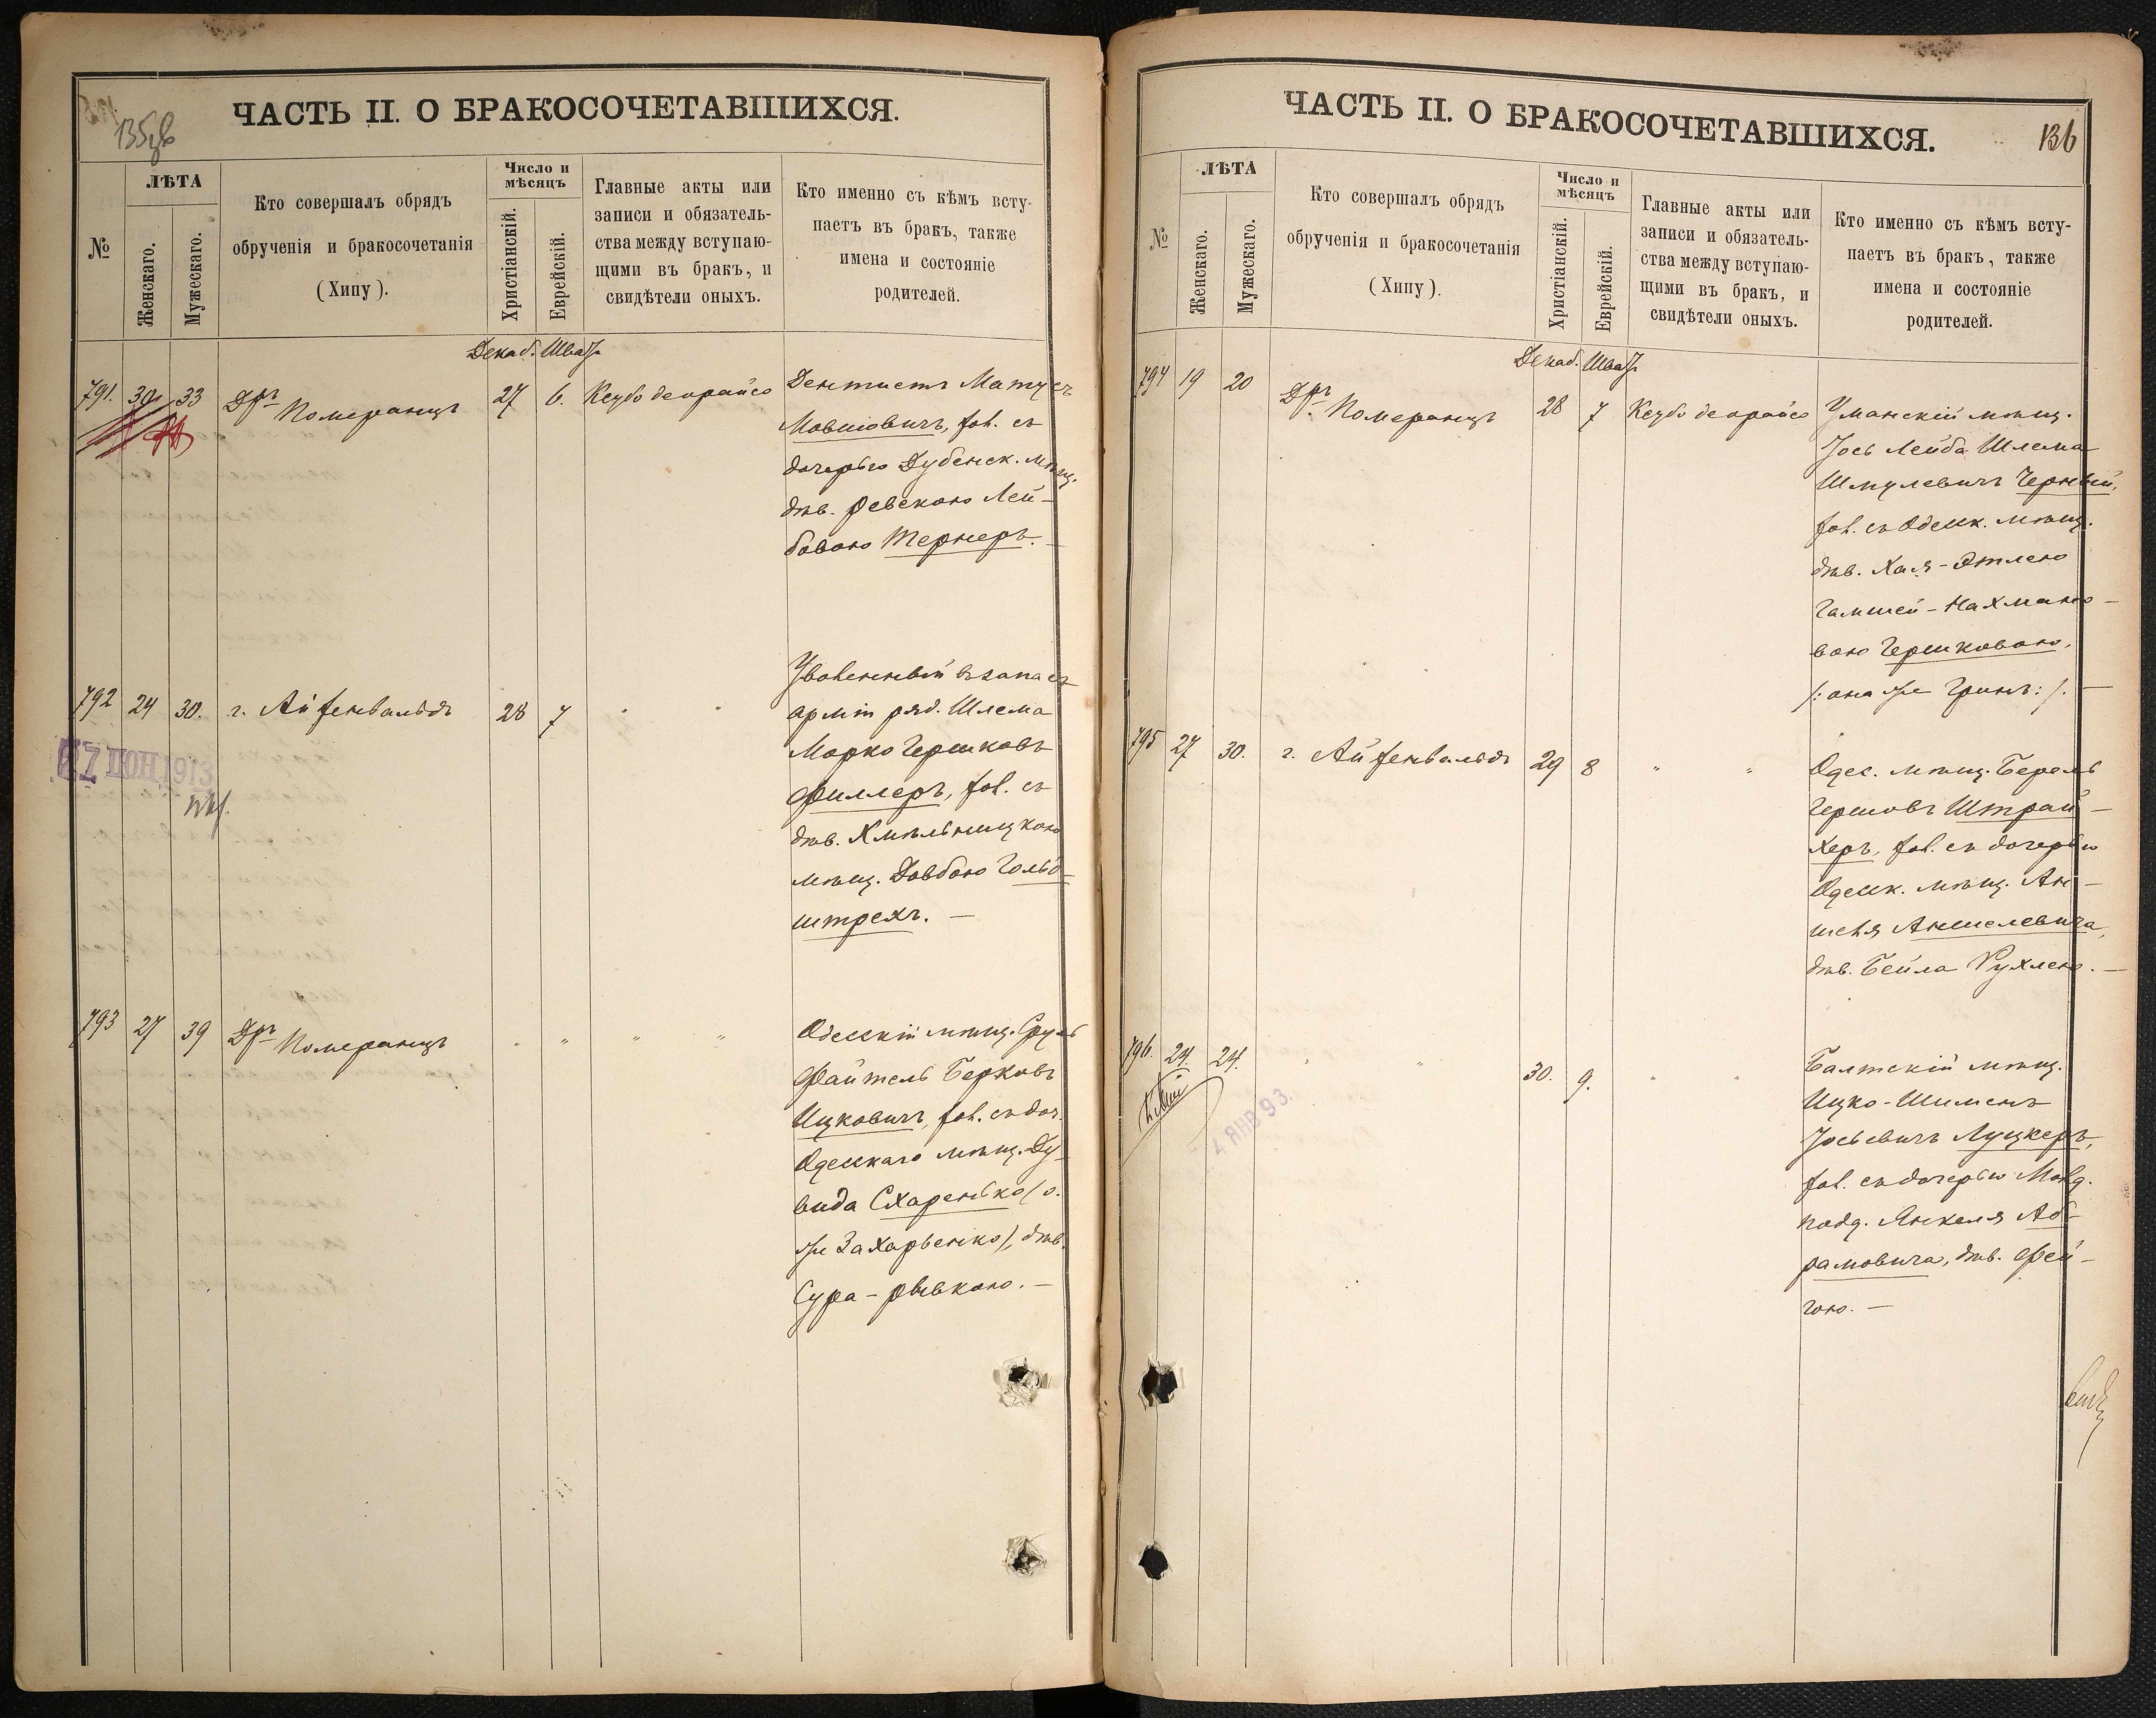 135об
ЧАСТЬ II. О БРАКОСОЧЕТАВШИХСЯ.
№
ЛѢТА
Женскаго.
Мужескаго.
Кто совершалъ обрядъ
обрученія и бракосочетанія
(Хипу).
Число и
мѣсяцъ
Христіанскій.
Еврейскій.
Главные акты или
записи и обязатель-
ства между вступаю-
щими въ бракъ, и
свидѣтели оныхъ.
Кто именно съ кѣмъ всту-
паетъ въ бракъ, также
имена и состояніе
родителей.
Декаб. Шватъ
791. 30 33 Дръ Померанцъ 27 6. Ксубо деорайсо
Дентистъ Матусъ
Мовшовичъ, хол. съ
дочерью Дубенск. мѣщ.
дѣв. Ривекою Лей-
бовою Тернеръ.—
792 24 30. г. Айзенвальдъ 28 7 " "
Уволенный въ запасъ
арміи ряд. Шлема
Марко Гершковъ
Филлеръ, хол. съ
дѣв. Хмѣльницкою
мѣщ. Довбою Гольд-
штрехъ. —
27 ІЮН 1913
793 27 39 Дръ Померанцъ " " " "
Одесскій мѣщ. Сруль
Файтель Берковъ
Ицковичъ, хол. съ доч.
Одесскаго мѣщ. Ду-
вида Схаренько (о.
же Захарьенко), дѣв.
Сура-Рывкою. —
ЧАСТЬ II. О БРАКОСОЧЕТАВШИХСЯ.
136
№
ЛѢТА
Женскаго.
Мужескаго.
Кто совершалъ обрядъ
обрученія и бракосочетанія
(Хипу).
Число и
мѣсяцъ
Христіанскій.
Еврейскій.
Главные акты или
записи и обязатель-
ства между вступаю-
щими въ бракъ, и
свидѣтели оныхъ.
Кто именно съ кѣмъ всту-
паетъ въ бракъ, также
имена и состояніе
родителей.
Декаб. Шватъ
794 19 20 Дръ Померанцъ 28 7 Ксубо деорайсо
Уманскій мѣщ.
Іось Лейба Шлема
Шмулевичъ Черный,
хол. съ Одесск. мѣщ.
дѣв. Хая-Этлею
Гамшей-Нахмано-
вою Гершковою,
/: она же Гринъ :/. —
795 27 30. г. Айзенвальдъ 29 8 " "
Одес. мѣщ. Берель
Гершовъ Штрай-
херъ, хол. съ дочерью
Одесск. мѣщ. Ан-
шеля Аншелевича,
дѣв. Бейла Рухлею. —
796. 24. 24. " " 30. 9. " "
Балтскій мѣщ.
Ицко-Шименъ
Іосьевичъ Луцкеръ,
хол. съ дочерью Молд.
подд. Янкеля Аб-
рамовича, дѣв. Фей-
гою. —
ЯНВ 93.